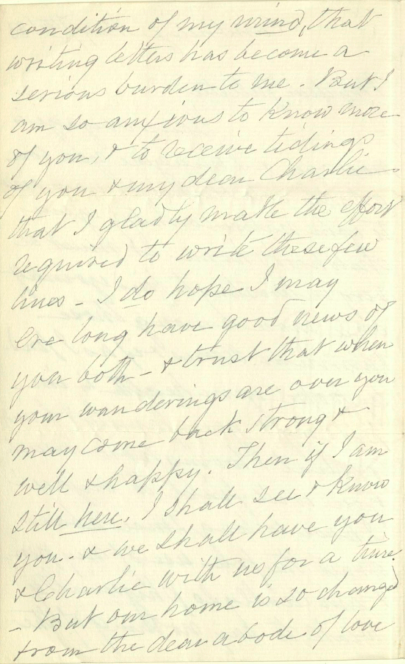 condition of my mind, that
writing letters has become a
serious burden to me. But I
am so anxious to know more
of you, & to receive tidings
of you & my dear Charlie
that I gladly make the effort
required to write these few
lines - I do hope I may
ere long have good news of
you both - & trust that when
your wanderings are over you
may come back strong &
well & happy. Then if I am
still here, I shall see & know
you - & we shall have you
& Charlie with us for a time,
- But our home is so changed
from the dear abode of love